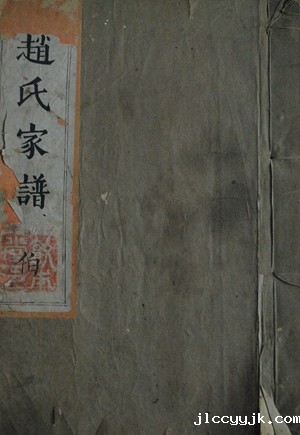 趙氏家譜
伯
jlccyyjk.com